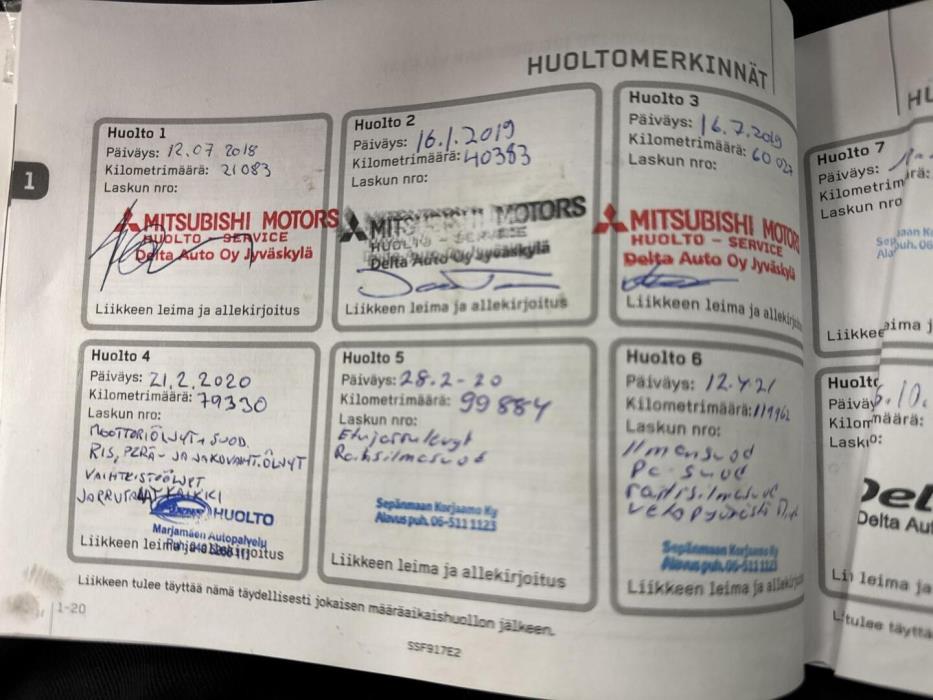 HUOLTOMERKINNÄT
1
Huolto 1
Päiväys: 12.07 2018
Kilometrimäärä: 21083
Laskun nro:
MITSUBISHI MOTORS
HUOLTO - SERVICE
Delta Auto Oy Jyväskylä
Liikkeen leima ja allekirjoitus
Huolto 2
Päiväys: 16.1.2019
Kilometrimäärä: 40383
Laskun nro:
MITSUBISHI MOTORS
HUOLTO - SERVICE
Delta Auto Oy Jyväskylä
Liikkeen leima ja allekirjoitus
Huolto 3
Päiväys: 16.7.2019
Kilometrimäärä: 60 027
Laskun nro:
MITSUBISHI MOTORS
HUOLTO - SERVICE
Delta Auto Oy Jyväskylä
Liikkeen leima ja allekirjoi
Huolto 4
Päiväys: 21.2.2020
Kilometrimäärä: 79330
Laskun nro:
MOOTTORIÖLJYT+SUOD.
RIS, PERÄ- JA JAKOVAIHT.ÖLJYT
VAIHTEISTÖLJYT
HUOLTO
Marjamäen Autopalvelu
Liikkeen leima ja allekirjoitus
Huolto 5
Päiväys: 28.2-20
Kilometrimäärä: 99884
Laskun nro:
Etujarrulevyt
Sepänmaan Korjaamo Ky
Alavus puh. 06-511 1123
Liikkeen leima ja allekirjoitus
Huolto 6
Päiväys: 12.4.21
Kilometrimäärä: 119962
Laskun nro:
Ilmansuod
Pa-suod
Sepänmaan Korjaamo Ky
Alavus puh. 06-511 1123
Liikkeen leima ja allekirjoitus
Liikkeen tulee täyttää nämä täydellisesti jokaisen määräaikaishuollon jälkeen.
1-20
SSF917E2
HU
Huolto 7
Päiväys:
Kilometrim
Laskun nro
puh. 06
Liikkee
Huolto
Päiväy
Kilom
Lask
Del
Delta Aut
leima ja
tulee täyttä